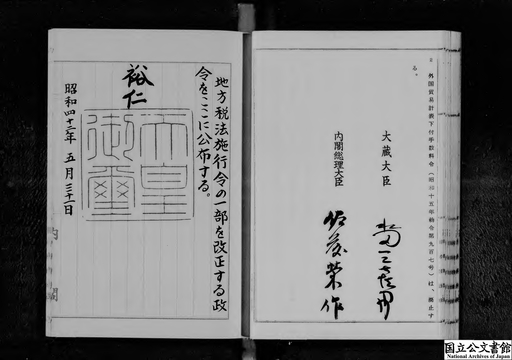 外国貿易計表下付手数料令（昭和十五年勅令第九百七号）は、廃止す
る。
大蔵大臣 水田三喜男
内閣総理大臣 佐藤榮作
地方税法施行令の一部を改正する政
令をここに公布する。
裕仁
天皇
御璽
昭和四十三年 五月三十一日
内閣
国立公文書館
National Archives of Japan